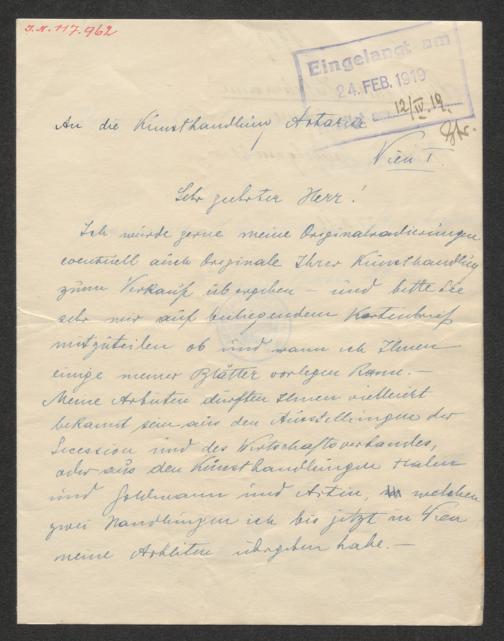 J.N. 117.962
Eingelangt am
24. FEB. 1919
12/IV. 19.
An die Kunsthandlung Artaria
Wien I.
Sehr geehrter Herr!
Ich würde gerne meine Originalradierungen
eventuell auch Originale Ihrer Kunsthandlung
zum Verkauf übergeben – und bitte Sie
sehr mir auf beiliegendem Kartenbrief
mitzuteilen ob und wann ich Ihnen
einige meiner Blätter vorlegen kann. –
Meine Arbeiten dürften Ihnen vielleicht
bekannt sein aus den Ausstellungen der
Secession und des Wirtschaftsverbandes,
oder aus den Kunsthandlungen Halm
und Goldmann und Artin, welchen
zwei Handlungen ich bis jetzt in Wien
meine Arbeiten übergeben habe. –